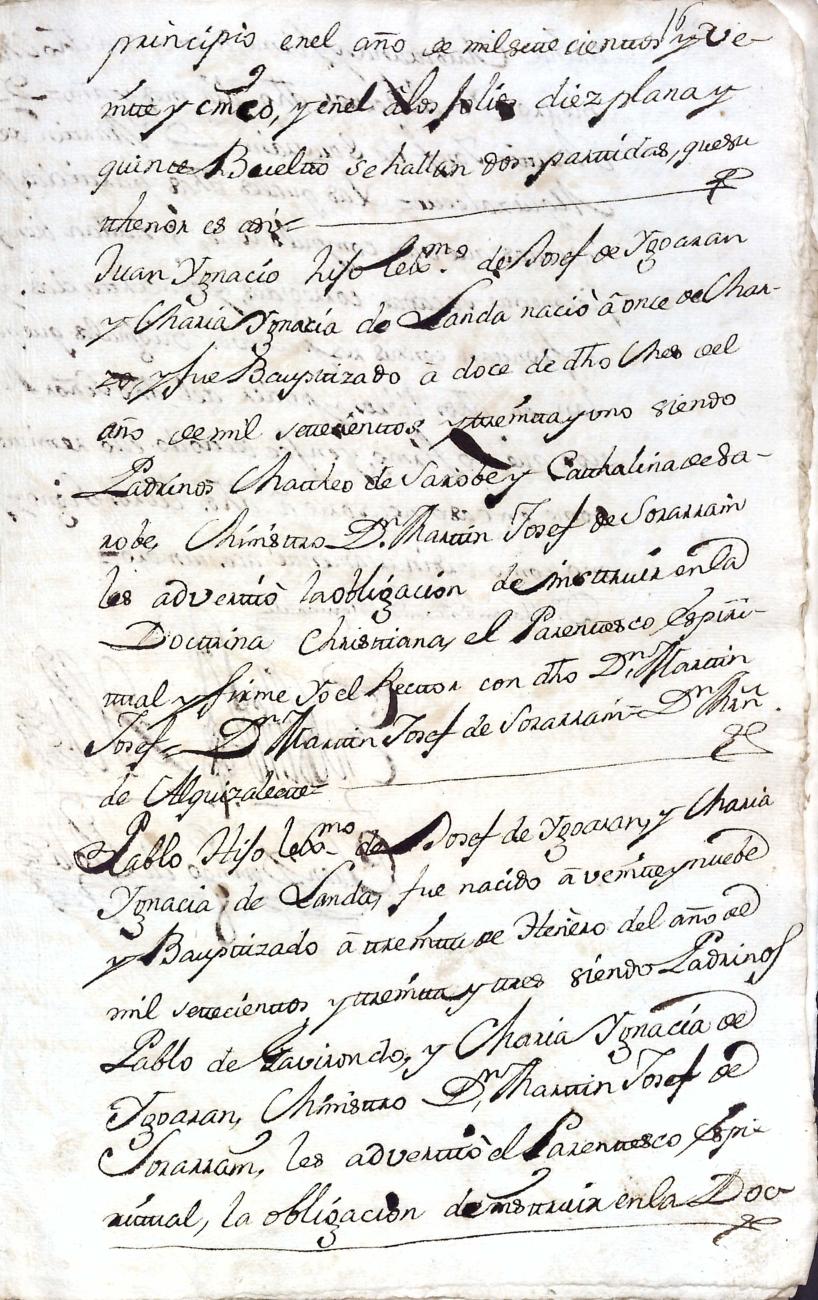 16
principio enel año de mil sete cientos y ve-
inte y cinco, y enel â los folios diez plana y
quince Buelto se hallan dos partidas, que su
thenòr es asi=
Juan Ygnacio hijo lexmo. de Josef de Ygoaran
y Maria Ygnacia de Landa naciò â once de Mar-
zo, y fue Bauptizado â doce de dho Mes del
año de mil setecientos y treinta y uno siendo
Padrinos Matheo de Sarobe y Cathalina de Sa-
robe, Ministro Dn. Martin Josef de Sorarrain
les advertiò la obligaciòn de instruir en la
Doctrina Christiana, el Parentesco Espiri-
tual y firme Yo el Rector con dho Dn. Martin
Josef= Dn. Martin Josef de Sorarrain= Dn. Mrn
de Alquizalete=
Pablo Hijo lexmo. de Josef de Ygoaran, y Maria
Ygnacia de Landa, fue nacido â veinte y nuebe
y Bauptizado â treinta de Henèro del año de
mil setecientos y treinta y tres siendo Padrinos
Pablo de Gavirondo, y Maria Ygnacia de
Ygoaran, Ministro Dn. Martin Josef de
Sorarrain, les advertiò el Parentesco Espi-
ritual, la obligaciòn de instruir en la Doc-